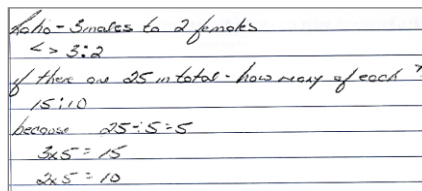 Ratio - 3 males to 2 females
<> 3:2
if there are 25 in total - how many of each?
15:10
because 25÷5=5
3x5=15
2x5=10